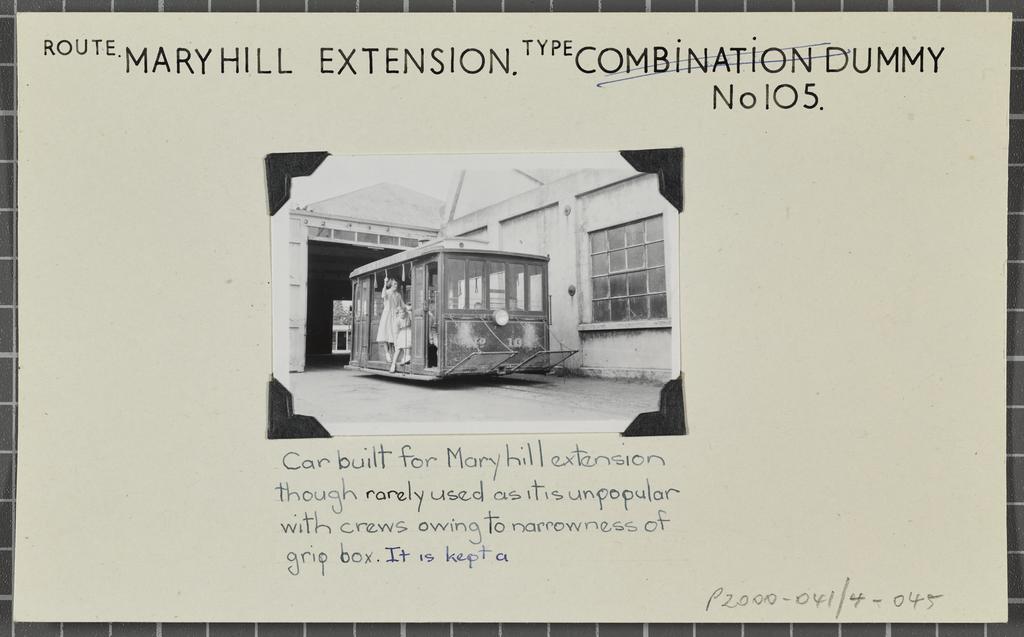 ROUTE. MARYHILL EXTENSION. TYPE COMBINATION DUMMY
No 105.
10
Car built for Maryhill extension
though rarely used as it is unpopular
with crews owing to narrowness of
grip box. It is kept a
P2000-041/4-045